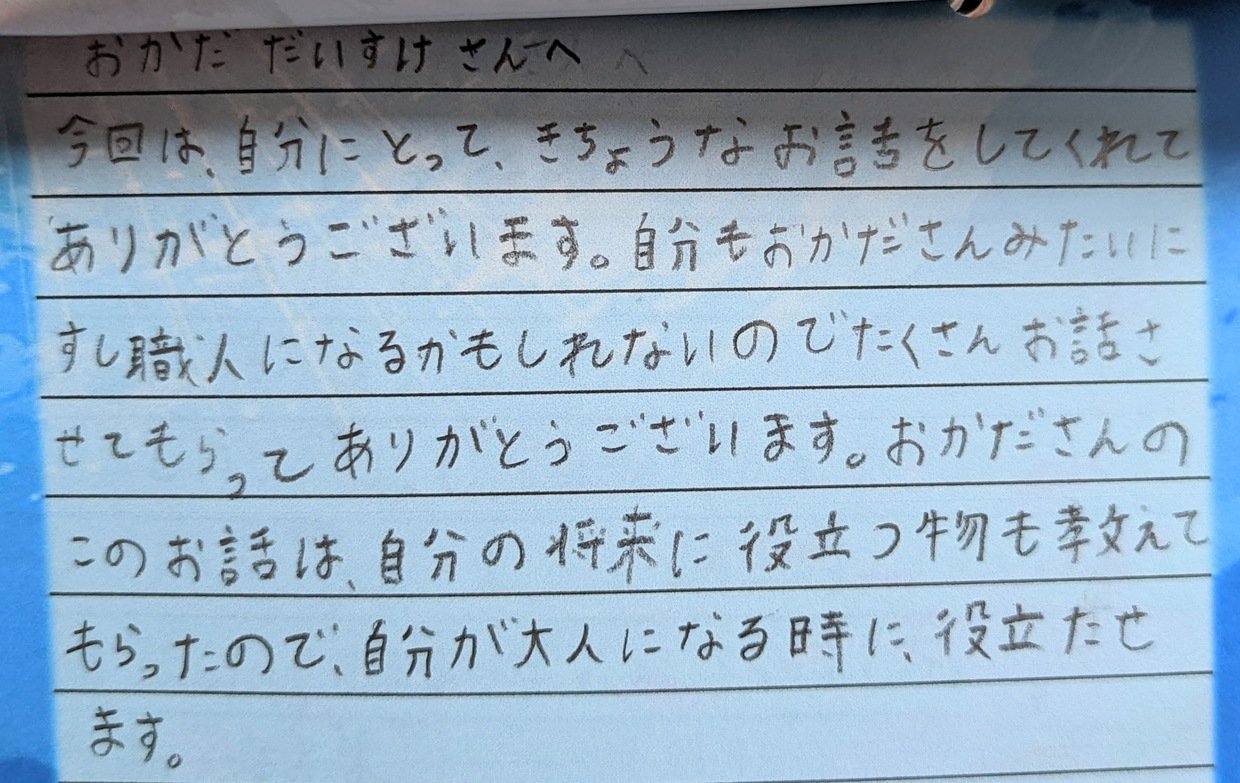 おかだ だいすけ さんへ
今回は、自分にとって、きちょうなお話をしてくれて
ありがとうございます。自分もおかださんみたいに
すし職人になるかもしれないのでたくさんお話さ
せてもらってありがとうございます。おかださんの
このお話は、自分の将来に役立つ物も教えて
もらったので、自分が大人になる時に、役立たせ
ます。